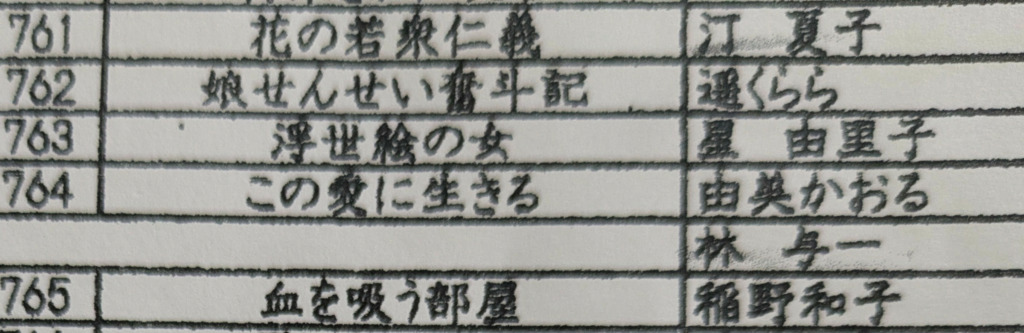 761 花の若衆仁義 汀 夏子
762 娘せんせい奮斗記 遥くらら
763 浮世絵の女 星 由里子
764 この愛に生きる 由美かおる
林 与一
765 血を吸う部屋 稲野和子